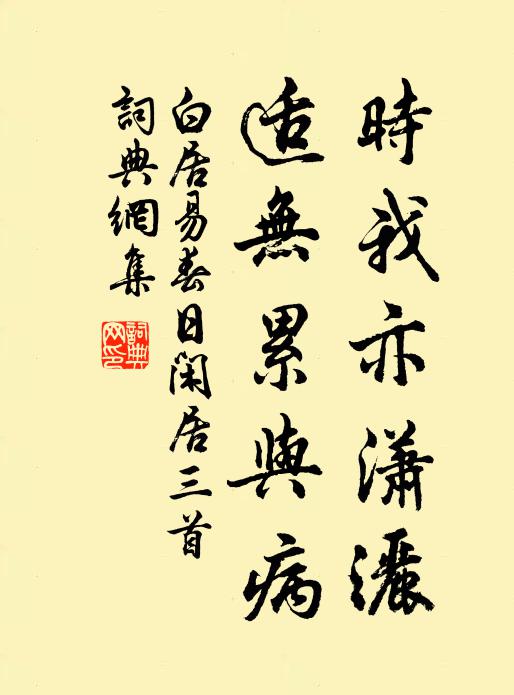 時我亦瀟灑
適無累與病
白居易春日閑居三首
詞典網集
詞典
网印